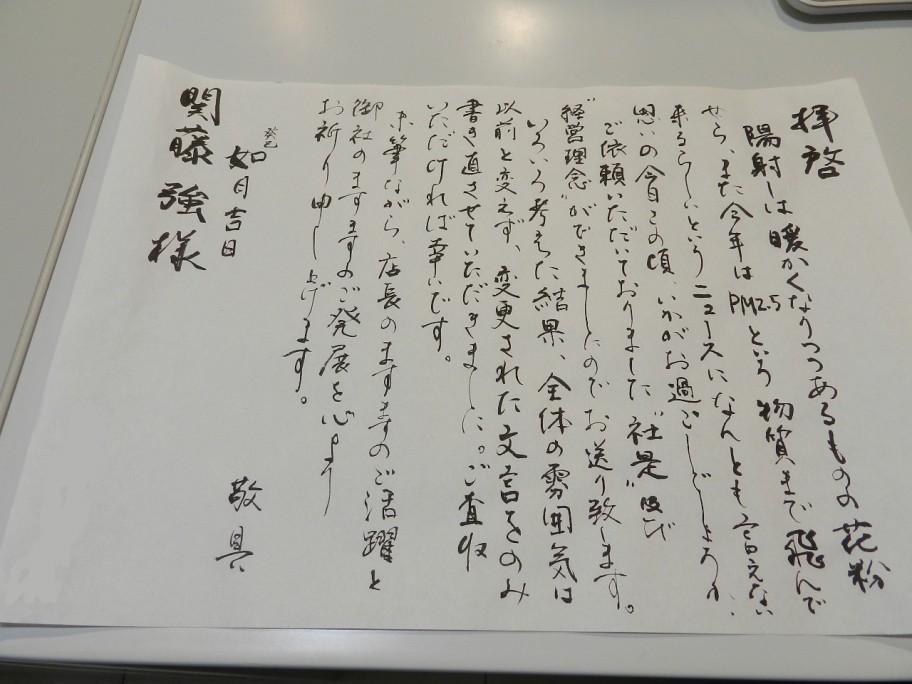 拝啓
陽射しは暖かくなりつつあるものの花粉
やら、また今年はPM2.5という物質まで飛んで
来るらしいというニュースになんとも言えない
思いの今日この頃、いかがお過ごしでしょうか。
ご依頼いただいておりました"社是"及び
"経営理念"ができましたのでお送り致します。
いろいろ考えた結果、全体の雰囲気は
以前と変えず、変更された文言をのみ
書き直させていただきました。ご査収
いただければ幸いです。
末筆ながら、店長のますますのご活躍と
御社のますますのご発展を心より
お祈り申し上げます。
敬具
癸巳
如月吉日
関藤強様